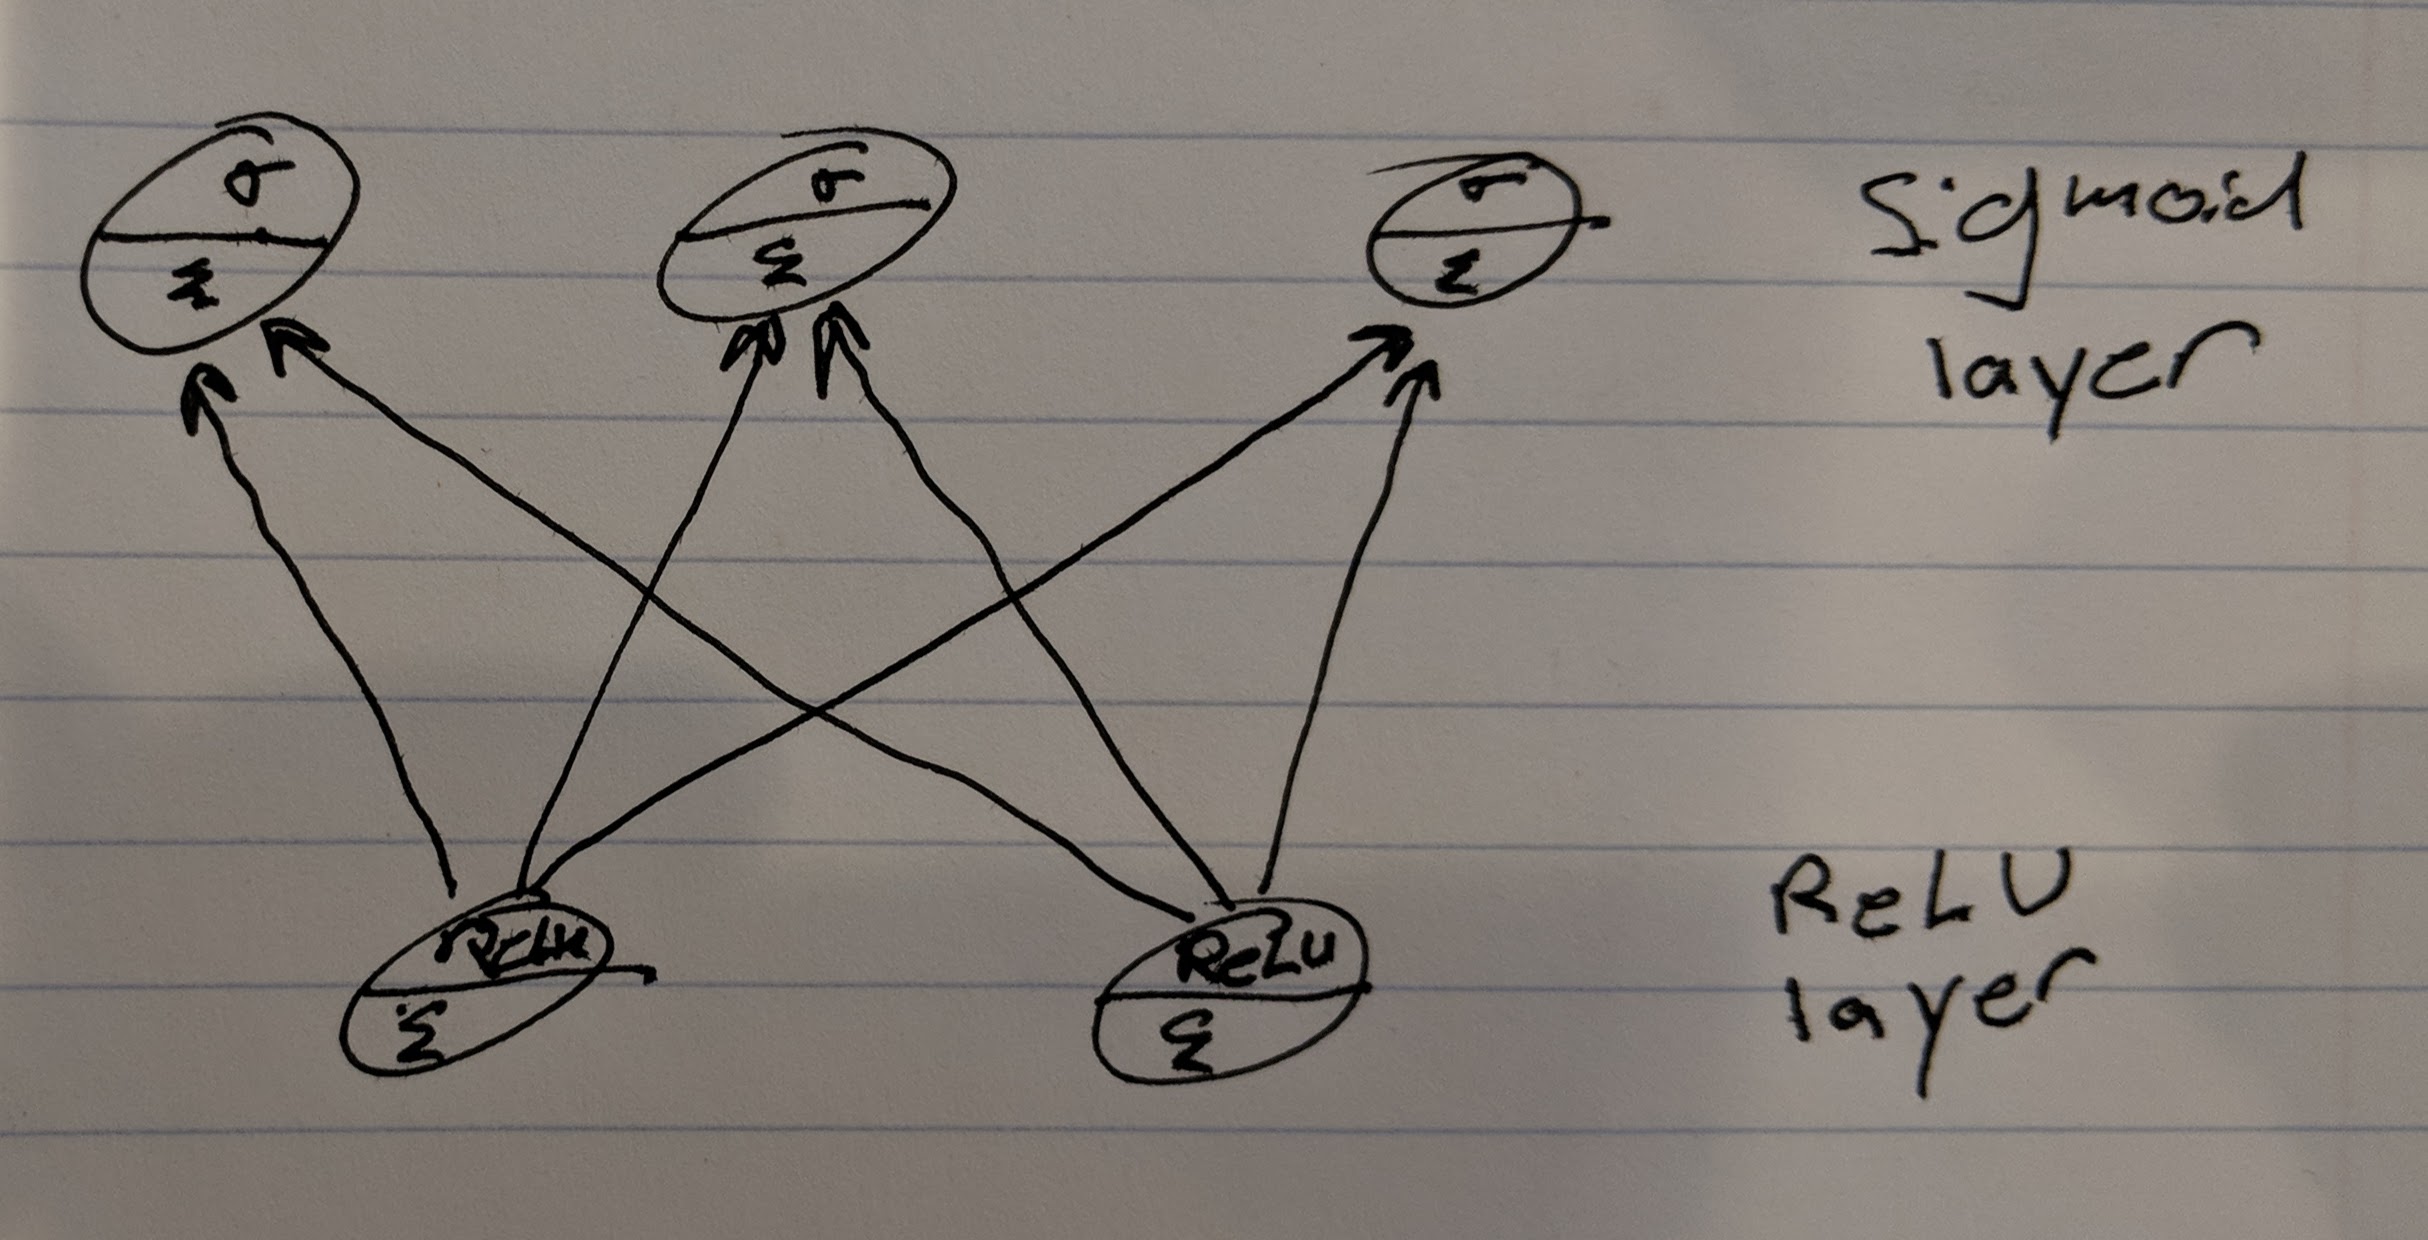 σ
Σ
σ
Σ
σ
Σ
Sigmoid
layer
ReLu
Σ
ReLu
Σ
ReLU
layer